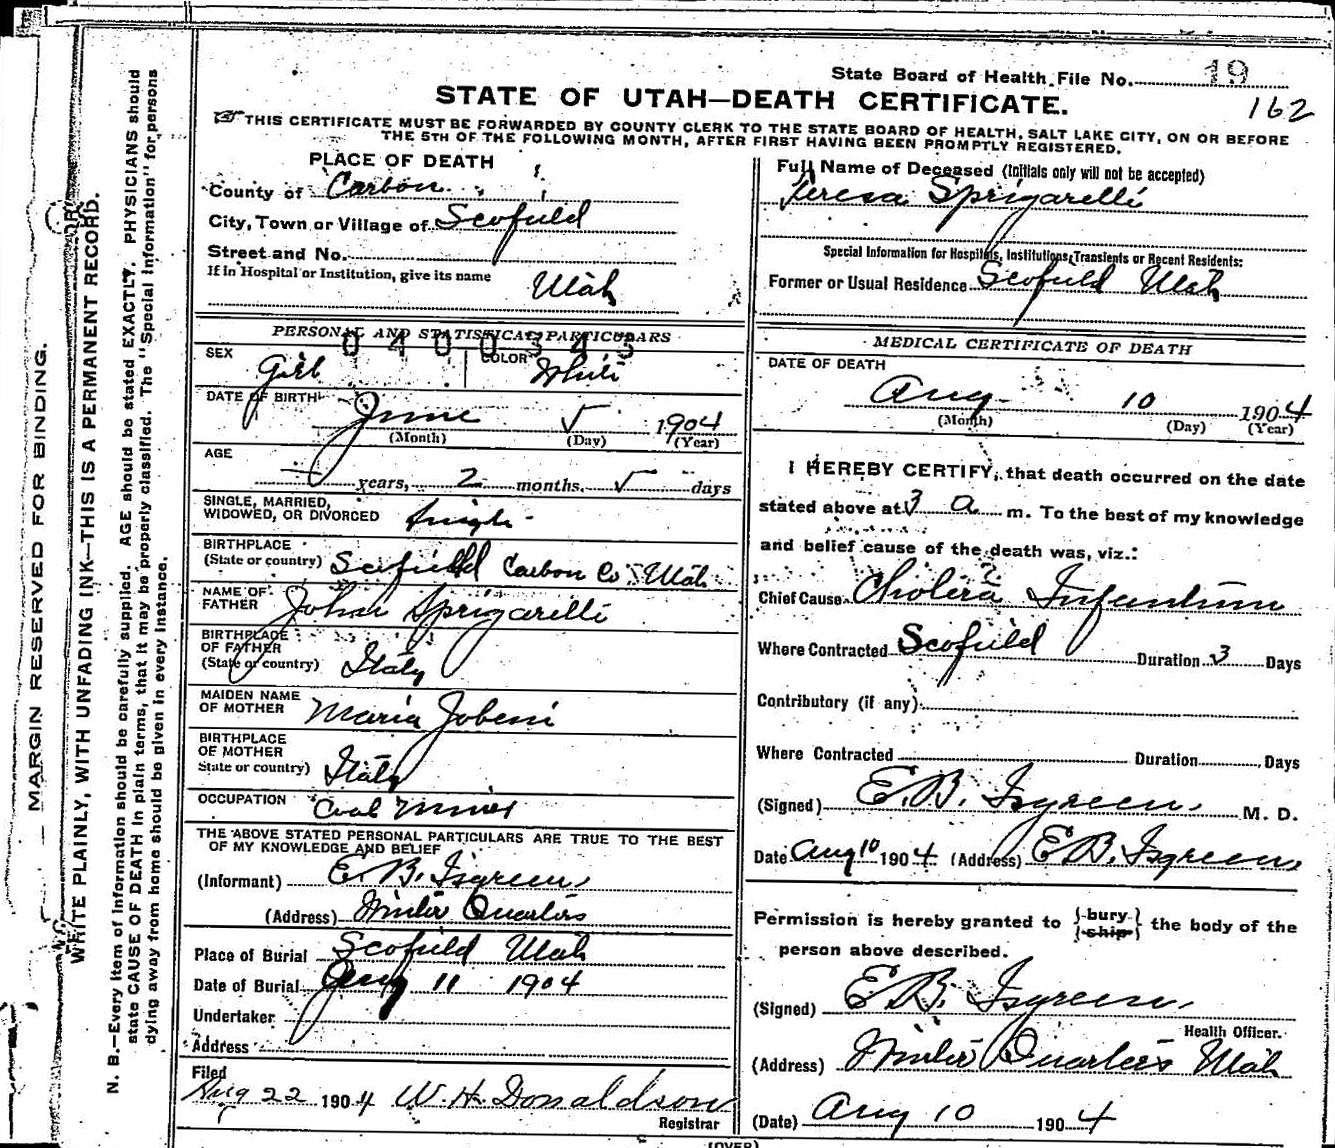 State Board of Health File No. 19
162
STATE OF UTAH—DEATH CERTIFICATE.
THIS CERTIFICATE MUST BE FORWARDED BY COUNTY CLERK TO THE STATE BOARD OF HEALTH, SALT LAKE CITY, ON OR BEFORE
THE 5TH OF THE FOLLOWING MONTH, AFTER FIRST HAVING BEEN PROMPTLY REGISTERED.
MARGIN RESERVED FOR BINDING.
WRITE PLAINLY, WITH UNFADING INK—THIS IS A PERMANENT RECORD.
N. B.—Every item of information should be carefully supplied. AGE should be stated EXACTLY. PHYSICIANS should
state CAUSE OF DEATH in plain terms, that it may be properly classified. The "Special Information" for persons
dying away from home should be given in every instance.
PLACE OF DEATH
County of Carbon
City, Town or Village of Scofield
Street and No.
If in Hospital or Institution, give its name Utah
PERSONAL AND STATISTICAL PARTICULARS
0400343
SEX Girl COLOR White
DATE OF BIRTH June 5 1904
(Month) (Day) (Year)
AGE
years, 2 months, 5 days
SINGLE, MARRIED,
WIDOWED, OR DIVORCED Single
BIRTHPLACE
(State or country) Scofield Carbon Co Utah
NAME OF
FATHER John Sprigarelli
BIRTHPLACE
OF FATHER
(State or country) Italy
MAIDEN NAME
OF MOTHER Maria Jobeni
BIRTHPLACE
OF MOTHER
State or country) Italy
OCCUPATION Coal Miner
THE ABOVE STATED PERSONAL PARTICULARS ARE TRUE TO THE BEST
OF MY KNOWLEDGE AND BELIEF
(Informant) E. B. Isgreen
(Address) Winter Quarters
Place of Burial Scofield Utah
Date of Burial Aug 11 1904
Undertaker
Address
Filed
Aug 22 1904 W. H. Donaldson
Registrar
Full Name of Deceased (Initials only will not be accepted)
Teresa Sprigarelli
Special Information for Hospitals, Institutions, Transients or Recent Residents:
Former or Usual Residence Scofield Utah
MEDICAL CERTIFICATE OF DEATH
DATE OF DEATH
Aug 10 1904
(Month) (Day) (Year)
I HEREBY CERTIFY, that death occurred on the date
stated above at 3 a. m. To the best of my knowledge
and belief cause of the death was, viz.:
Chief Cause Cholera Infantum
Where Contracted Scofield Duration 3 Days
Contributory (if any)
Where Contracted Duration Days
(Signed) E. B. Isgreen, M. D.
Date Aug 10 1904. (Address) E B. Isgreen
Permission is hereby granted to {bury
ship} the body of the
person above described.
(Signed) E. B. Isgreen,
Health Officer.
(Address) Winter Quarters Utah
(Date) Aug 10 1904
(OVER)